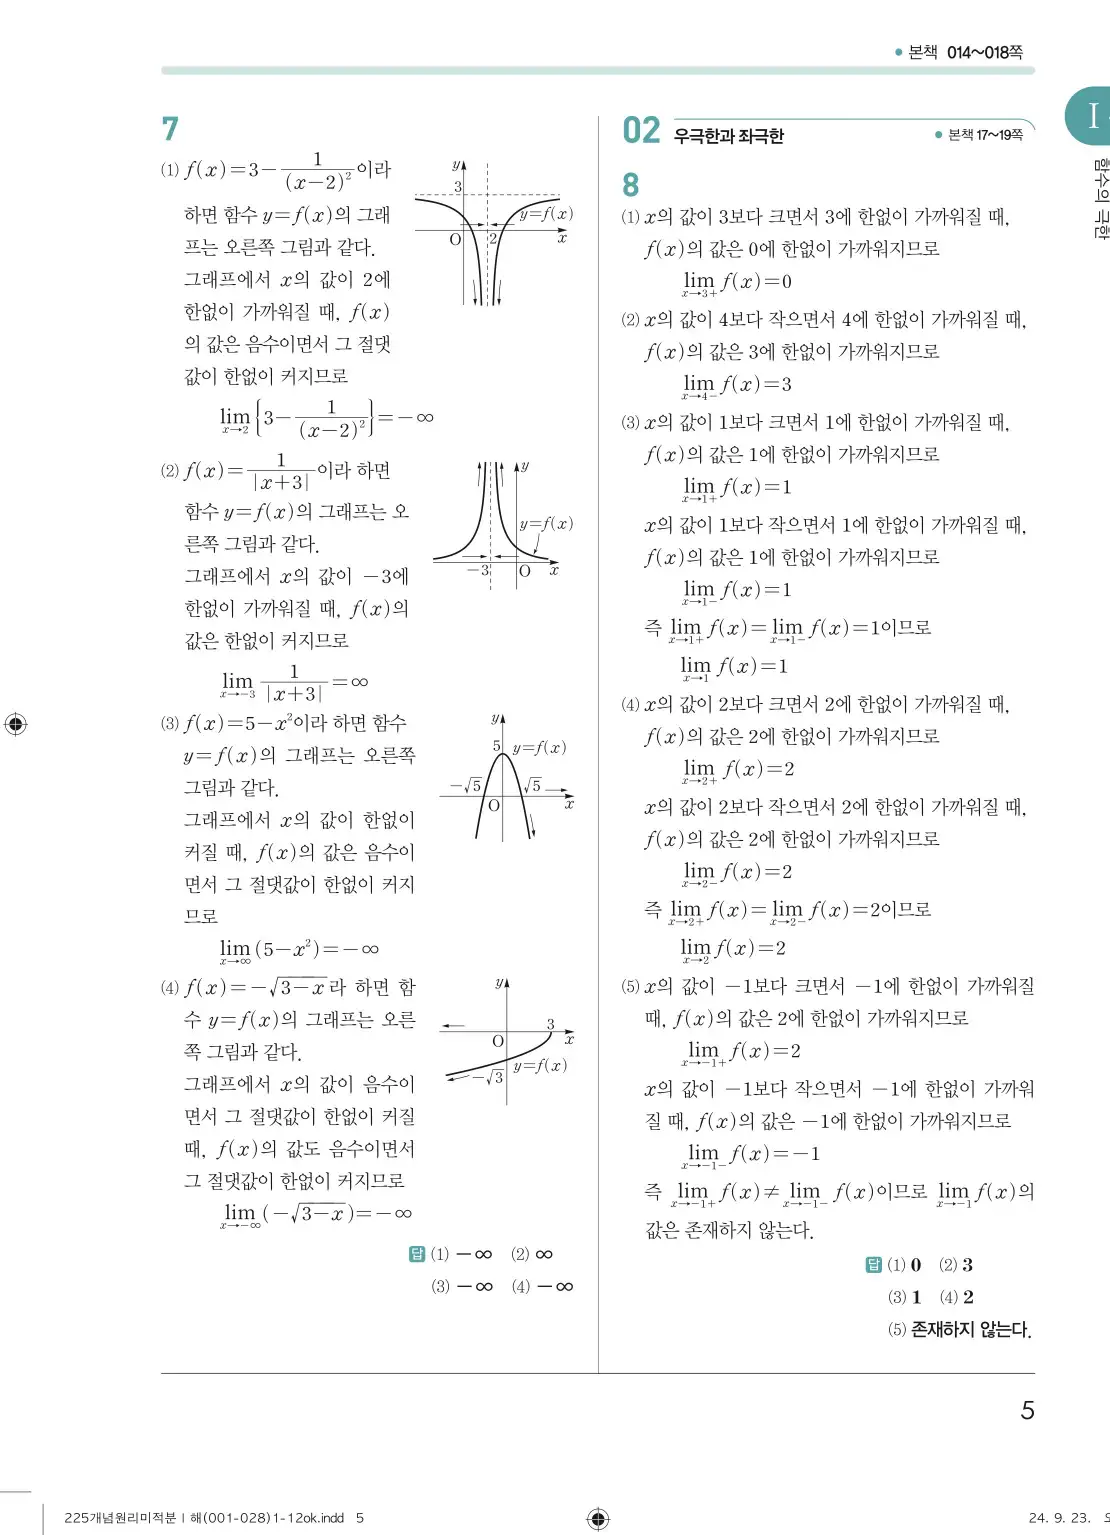 본책 014~018쪽
I
함수의 극한
7
(1) f(x)=3-\frac{1}{(x-2)^2}이라
하면 함수 y=f(x)의 그래
프는 오른쪽 그림과 같다.
그래프에서 x의 값이 2에
한없이 가까워질 때, f(x)
의 값은 음수이면서 그 절댓
값이 한없이 커지므로
\lim_{x→2}{3-\frac{1}{(x-2)^2}}=-∞
y
3
y=f(x)
O 2 x
(2) f(x)=\frac{1}{|x+3|}이라 하면
함수 y=f(x)의 그래프는 오
른쪽 그림과 같다.
그래프에서 x의 값이 -3에
한없이 가까워질 때, f(x)의
값은 한없이 커지므로
\lim_{x→-3}\frac{1}{|x+3|}=∞
y
y=f(x)
-3 O x
(3) f(x)=5-x^2이라 하면 함수
y=f(x)의 그래프는 오른쪽
그림과 같다.
그래프에서 x의 값이 한없이
커질 때, f(x)의 값은 음수이
면서 그 절댓값이 한없이 커지
므로
\lim_{x→∞}(5-x^2)=-∞
y
5 y=f(x)
-√5 √5
O x
(4) f(x)=-\sqrt{3-x}라 하면 함
수 y=f(x)의 그래프는 오른
쪽 그림과 같다.
그래프에서 x의 값이 음수이
면서 그 절댓값이 한없이 커질
때, f(x)의 값도 음수이면서
그 절댓값이 한없이 커지므로
\lim_{x→-∞}(-\sqrt{3-x})=-∞
y
3
O x
y=f(x)
-√3
답 (1) -∞ (2) ∞
(3) -∞ (4) -∞
02 우극한과 좌극한
본책 17~19쪽
8
(1) x의 값이 3보다 크면서 3에 한없이 가까워질 때,
f(x)의 값은 0에 한없이 가까워지므로
\lim_{x→3+} f(x)=0
(2) x의 값이 4보다 작으면서 4에 한없이 가까워질 때,
f(x)의 값은 3에 한없이 가까워지므로
\lim_{x→4-} f(x)=3
(3) x의 값이 1보다 크면서 1에 한없이 가까워질 때,
f(x)의 값은 1에 한없이 가까워지므로
\lim_{x→1+} f(x)=1
x의 값이 1보다 작으면서 1에 한없이 가까워질 때,
f(x)의 값은 1에 한없이 가까워지므로
\lim_{x→1-} f(x)=1
즉 \lim_{x→1+} f(x)=\lim_{x→1-} f(x)=1이므로
\lim_{x→1} f(x)=1
(4) x의 값이 2보다 크면서 2에 한없이 가까워질 때,
f(x)의 값은 2에 한없이 가까워지므로
\lim_{x→2+} f(x)=2
x의 값이 2보다 작으면서 2에 한없이 가까워질 때,
f(x)의 값은 2에 한없이 가까워지므로
\lim_{x→2-} f(x)=2
즉 \lim_{x→2+} f(x)=\lim_{x→2-} f(x)=2이므로
\lim_{x→2} f(x)=2
(5) x의 값이 -1보다 크면서 -1에 한없이 가까워질
때, f(x)의 값은 2에 한없이 가까워지므로
\lim_{x→-1+} f(x)=2
x의 값이 -1보다 작으면서 -1에 한없이 가까워
질 때, f(x)의 값은 -1에 한없이 가까워지므로
\lim_{x→-1-} f(x)=-1
즉 \lim_{x→-1+} f(x)≠\lim_{x→-1-} f(x)이므로 \lim_{x→-1} f(x)의
값은 존재하지 않는다.
답 (1) 0 (2) 3
(3) 1 (4) 2
(5) 존재하지 않는다.
5
225개념원리미적분Ⅰ해(001-028)1-12ok.indd 5
24. 9. 23.